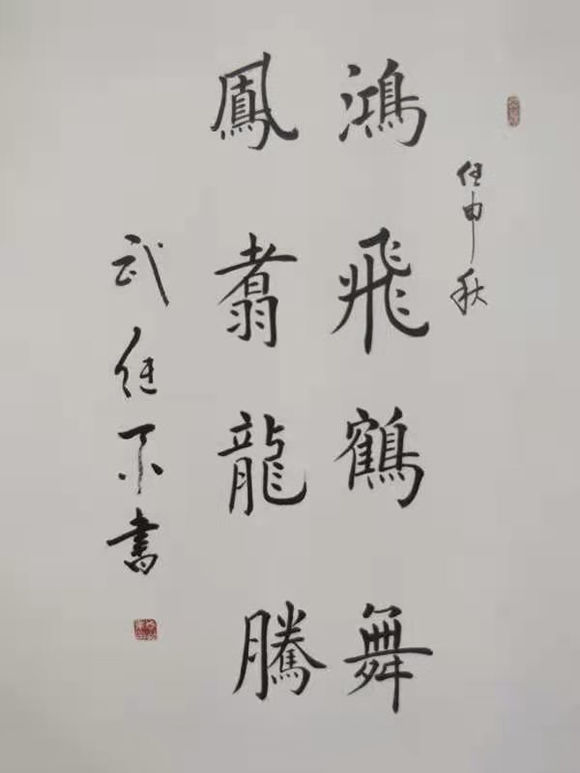 任申秋
鴻飛鶴舞
鳳翥龍騰
武 書